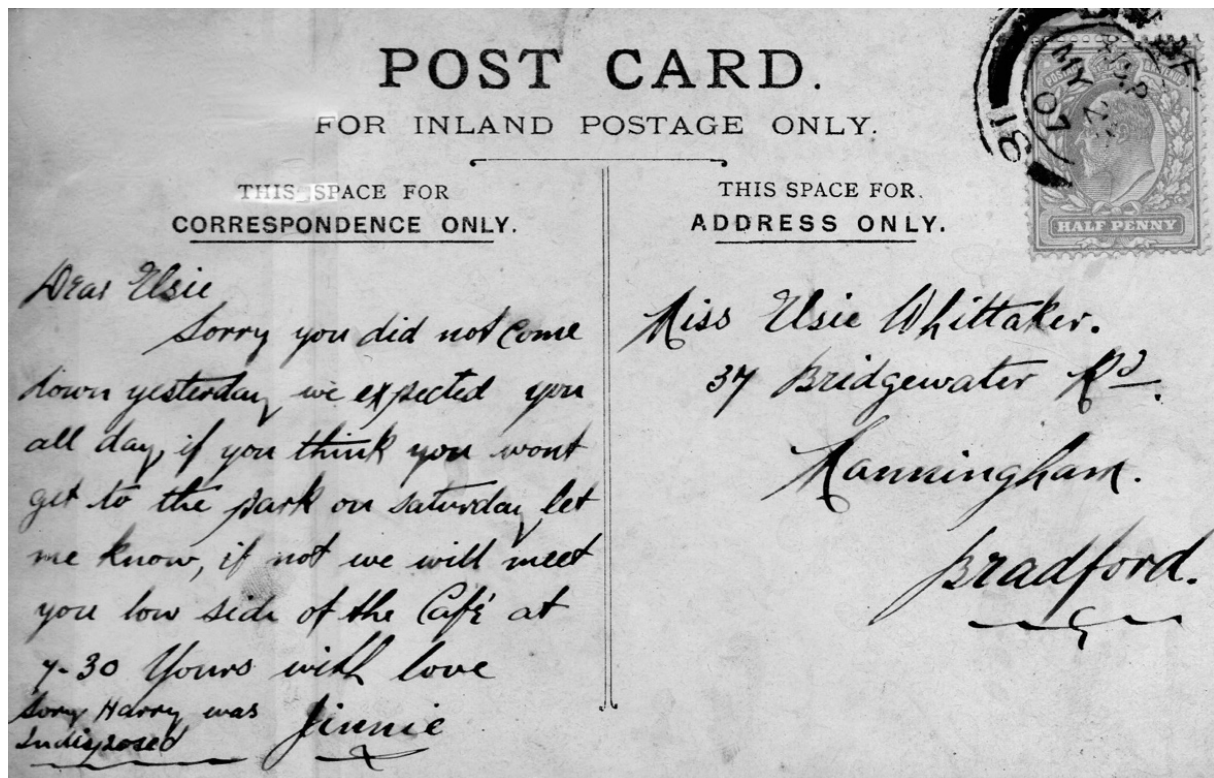 POST CARD.
FOR INLAND POSTAGE ONLY.
THIS SPACE FOR
CORRESPONDENCE ONLY.
Dear Elsie
Sorry you did not come
down yesterday, we expected you
all day, if you think you wont
get to the park on saturday, let
me know, if not we will meet
you low side of the Café at
7-30 Yours with love
Jinnie
Sorry Harry was
Indisposed
THIS SPACE FOR.
ADDRESS ONLY.
Miss Elsie Whittaker.
37 Bridgewater Rd.
Manningham.
Bradford.
MY 2
07
18
HALF PENNY